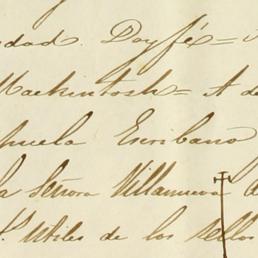 dad. Doy fé =
Mackintosh = A de
huela Escribano
la Señora Villanueva
utiles de los sellos